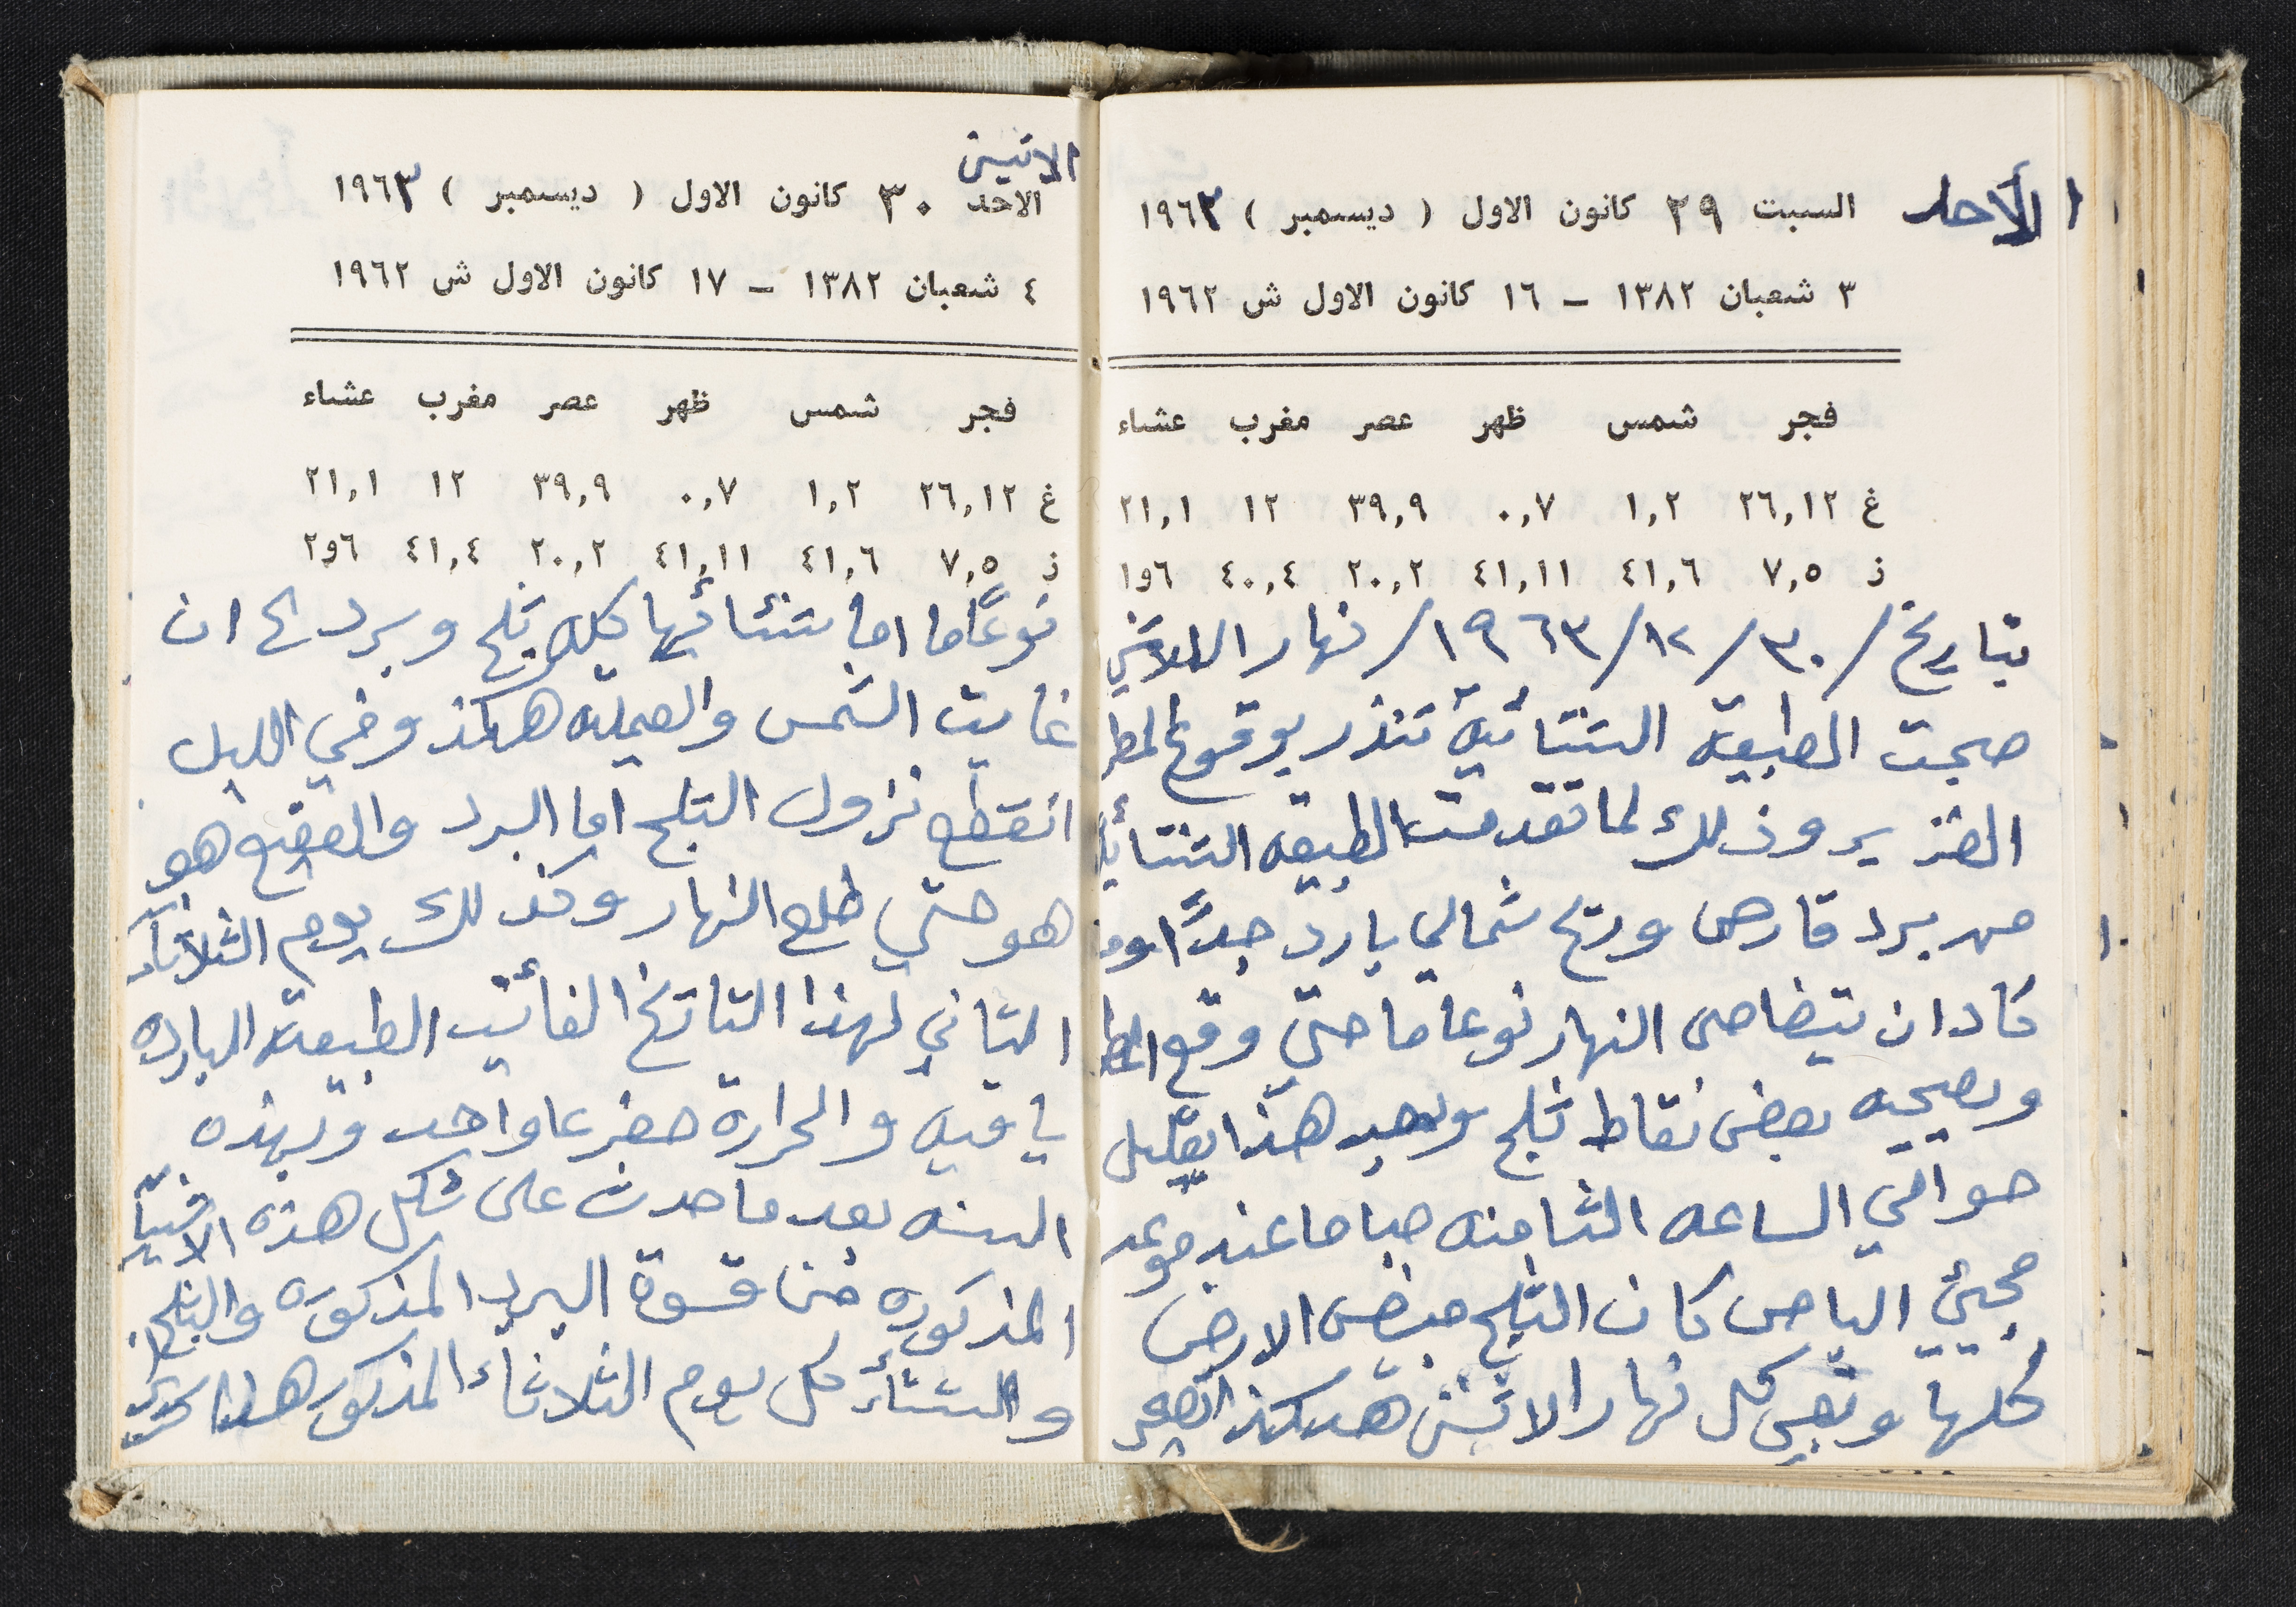 الأحد
السبت ٢٩ كانون الاول ( ديسمبر ) ١٩٦٣
٣ شعبان ١٣٨٢ – ١٦ كانون الاول ش ١٩٦٢
فجر شمس ظهر عصر مغرب عشاء
غ ٢٦,١٢ ١,٢ ٠,٧ ٣٩,٩ ١٢ ٢١,١
ز ٧,٥ ٤١,٦ ٤١,١١ ٢٠,٢ ٤٠,٤ ٦و١
بتاريخ /٣٠/١٢/١٩٦٣/ نهار الاثنين
صبحت الطبيعه الشتائية تنذر بوقوع المطر
الغزير وذلك لما تقدمت الطبيعه الشتائيه
من برد قارص وريح شمالي بارد جدًا وما
كاد ان يتضاحى النهار نوعا ما حتي وقع المطر
وبصحبه بعض نقاط ثلج وبعد هذا بقليل
حوالي الساعه الثامنه صباحا عند موعد
مجيئ الباص كان الثلج مبيض الارض
كلها وبقي كل نهار الاثنين هيكذ
الاثنين
الاحد ٣٠ كانون الاول ( ديسمبر ) ١٩٦٣
٤ شعبان ١٣٨٢ – ١٧ كانون الاول ش ١٩٦٢
فجر شمس ظهر عصر مغرب عشاء
غ ٢٦,١٢ ١,٢ ٠,٧ ٣٩,٩ ١٢ ٢١,١
ز ٧,٥ ٤١,٦ ٤١,١١ ٢٠,٢ ٤١,٤ ٦و٢
نوعًاما اما شتائها كله ثلج وبرد الى ان
غابت الشمس والعمليه هيكذ وفي الليل
انقطع نزول الثلج اما البرد والصقيع هو
هو حتي طلع النهار وكذلك يوم الثلاثاء
الثاني لهذا التاريخ الفائت الطبيعة البارده
باقيه والحرارة صفر عا واحد وبهذه
السنه بعد ما حدث على شكل هذه الاشيأ
المذكوره من قسوة البرد المذكوره والثلج
والشتاء كل يوم الثلاثاء المذكور هذا